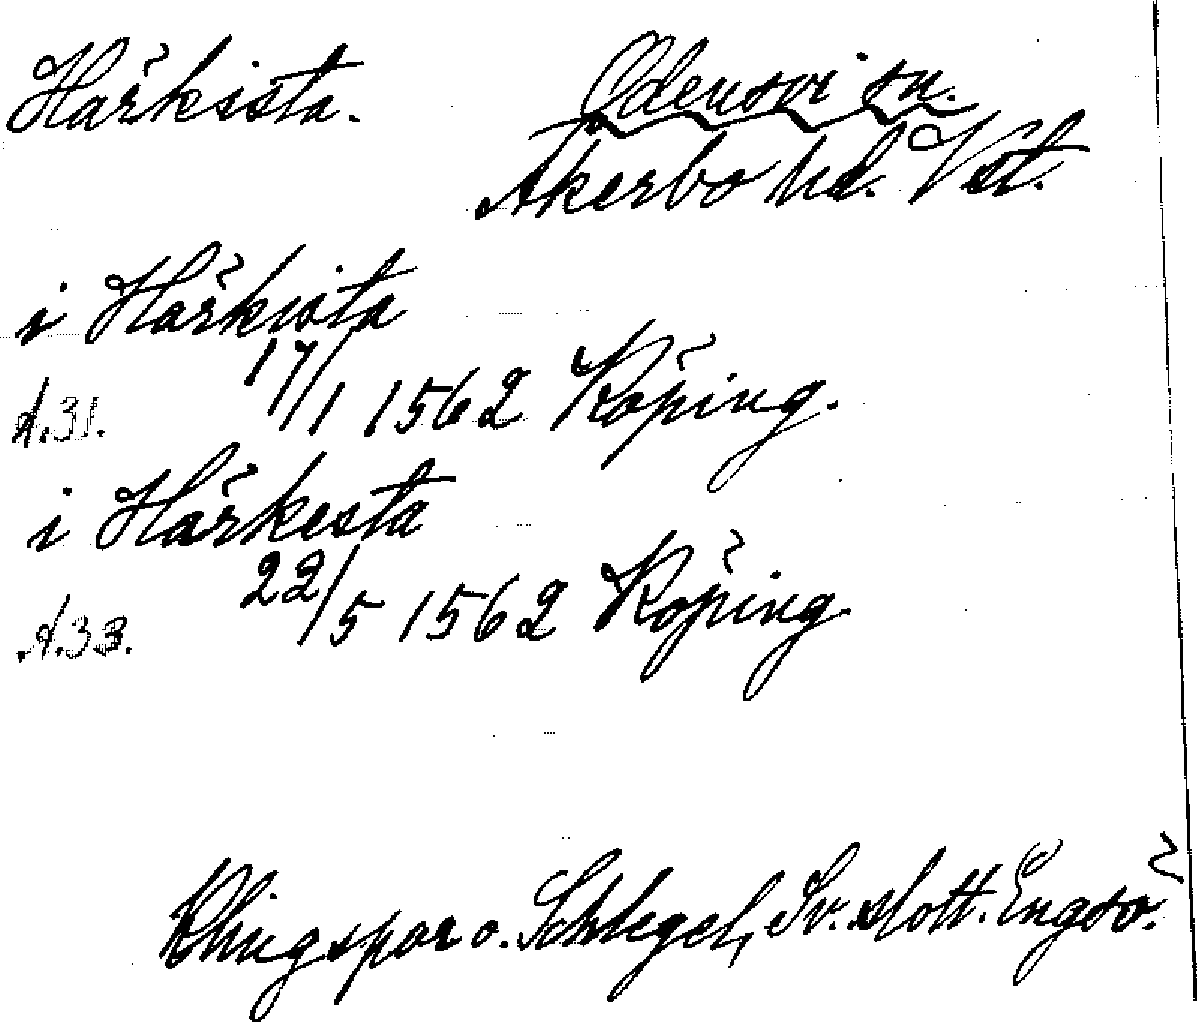 Härkista. Odensvi sn.
Åkerbo hd. Vstl.
i Härkista
17/1 1562 Köping.
A.31.
i Härkesta
22/5 1562 Köping.
A.33.
Klingspor o. Schlegel, Sv. slott. Engsö.